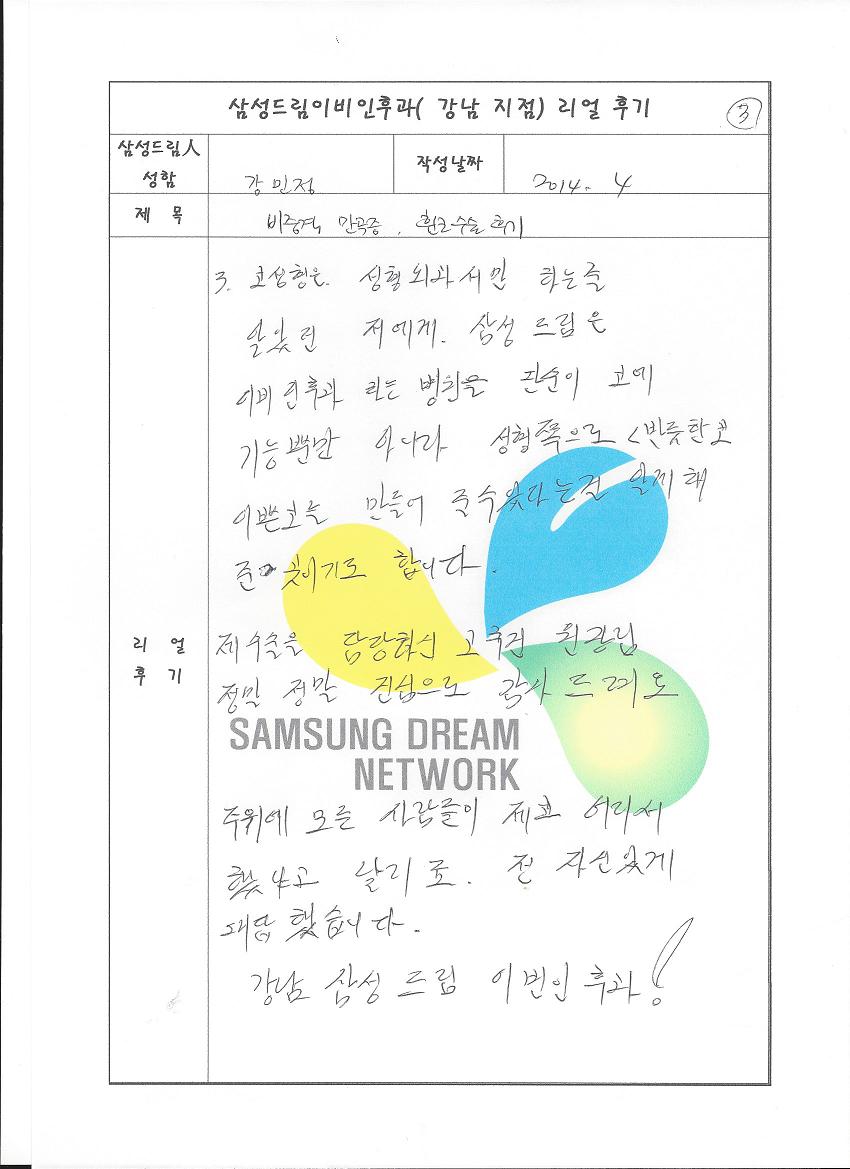 삼성드림이비인후과( 강남 지점) 리얼 후기
3
삼성드림人
성함
강민정
작성날짜
2014. 4
제 목
비중격 만곡증 . 휜코수술 후기
리 얼
후 기
3. 코성형은 성형외과서만 하는줄
알았던 저에게. 삼성 드림은
이비인후과 라는 병원을 단순이 코에
기능뿐만 아니라 성형쪽으로 <반듯한코
이쁜코를 만들어 줄수있다는걸 알게해
준 곳이기도 합니다.
제수술을 담당하신 원장님
정말 정말 진심으로 감사 드려요
SAMSUNG DREAM
NETWORK
주위에 모든 사람들이 제코 어디서
했냐고 난리죠. 전 자신있게
대답 했습니다.
강남 삼성 드림 이빈인후과!